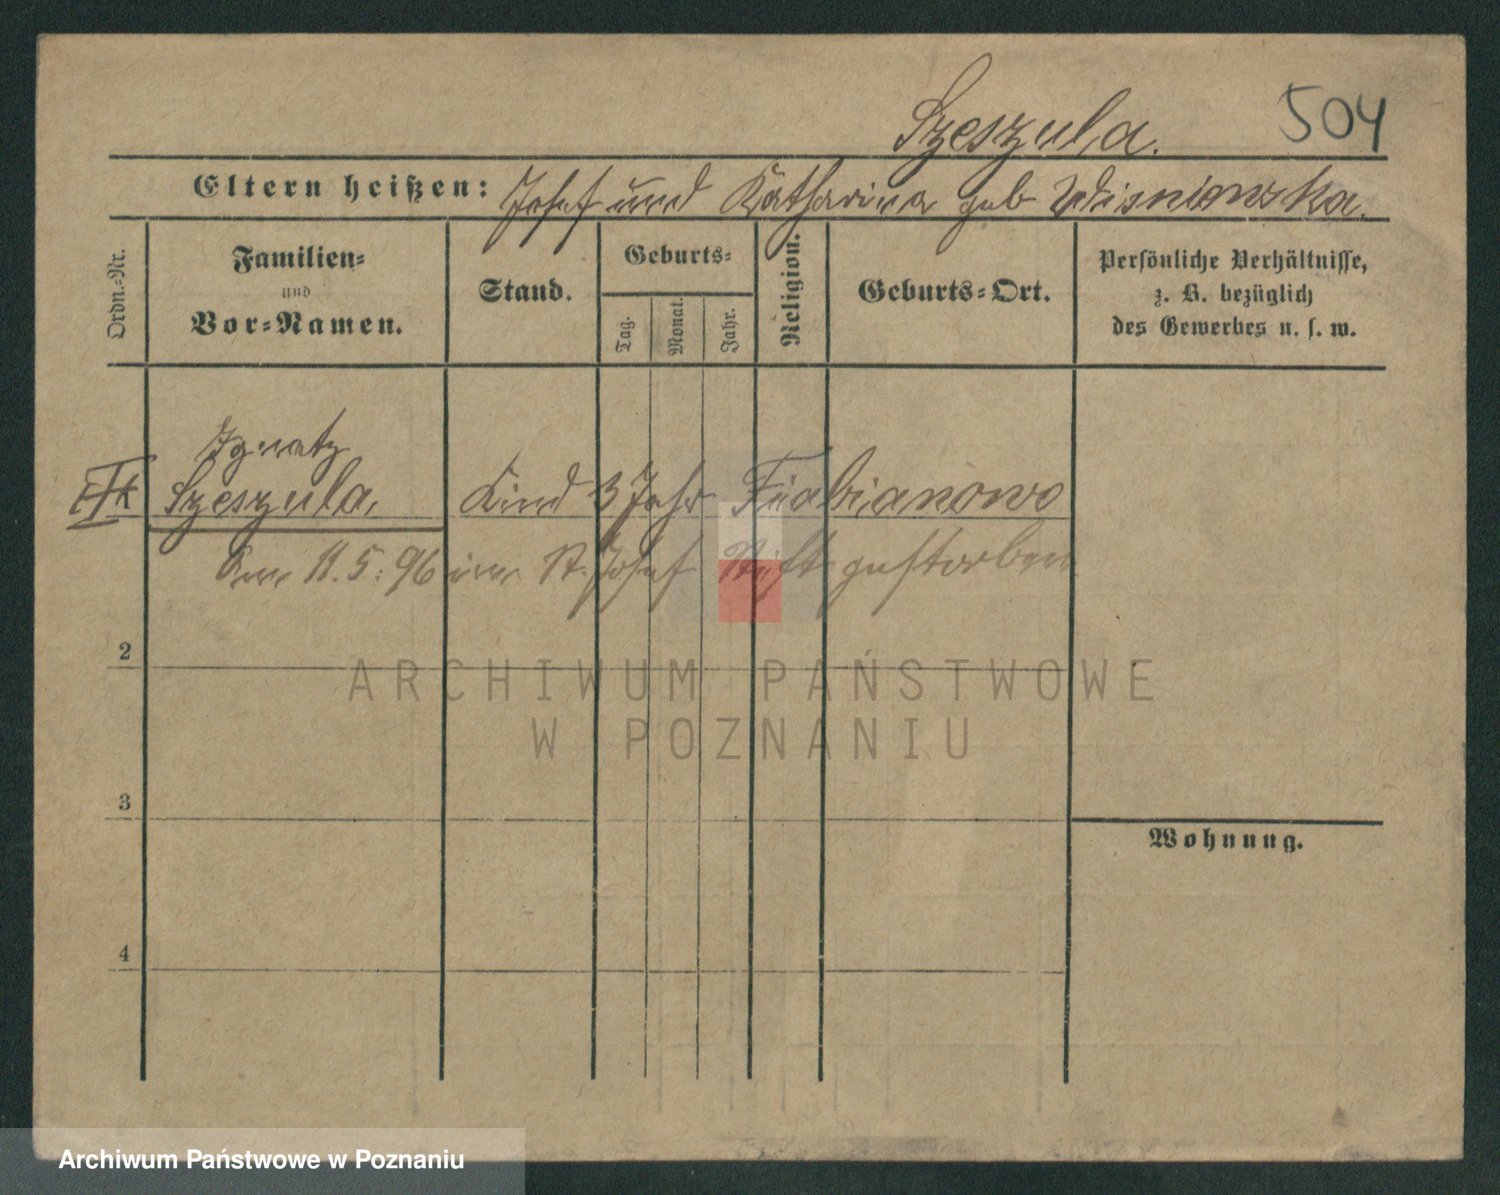 Szeszula. 504
Eltern heißen: Josef und Katharina geb Wisniewska.
Ordn.-Nr.
Familien-
und
Vor-Namen.
Stand.
Geburts-
Tag.
Monat.
Jahr.
Religion.
Geburts-Ort.
Persönliche Verhältnisse,
z. B. bezüglich
des Gewerbes u. s. w.
Ignatz
Szeszula, Kind 3 Jahr Fabianowo
Am 11.5.96 im St. Josef Stift gestorben
2
ARCHIWUM PAŃSTWOWE
W POZNANIU
3
Wohnung.
4
Archiwum Państwowe w Poznaniu